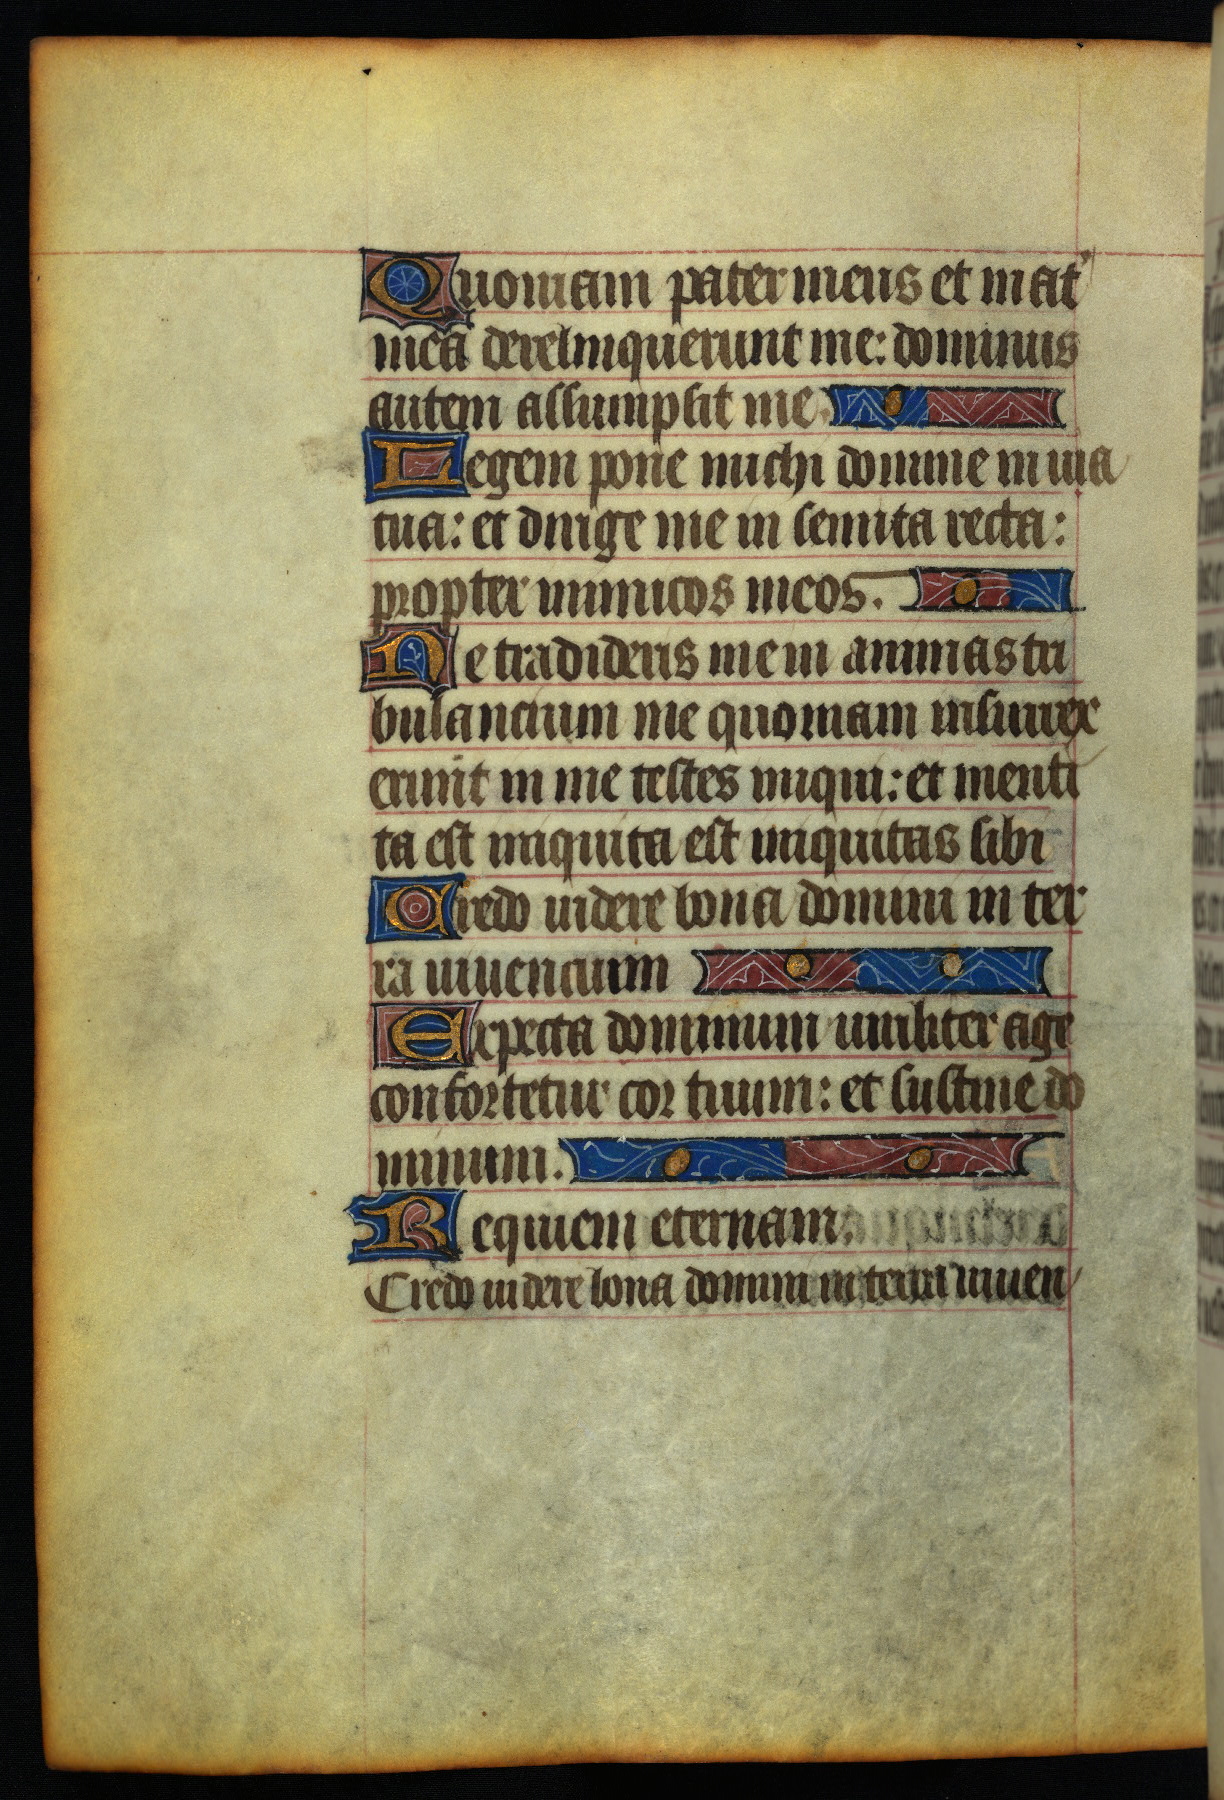 Quoniam pater meus et mat'
mea derelinquerunt me: dominus
autem assumpsit me.
Legem pone michi domine in uia
tua: et dirige me in semita recta:
propter inimicos meos.
Ne tradideris me in animas tri
bulancium me quoniam insurrex
erunt in me testes iniqui: et menti
ta est iniquita est iniquitas sibi
Credo uidere bona domini in ter
ra uiuencium
Expecta dominum uiriliter age
confortetur cor tuum: et sustine do
minum.
Requiem eternam.
Credo uidere bona domini in terra uiuen